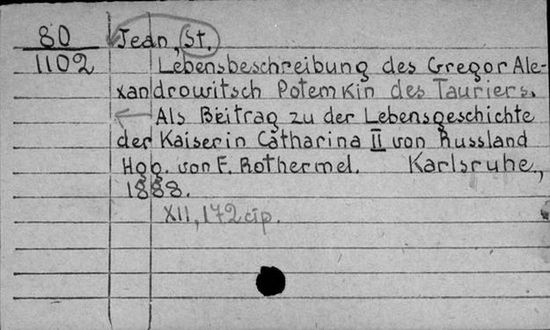 80 Jean, St.
1102 Lebensbeschreibung des Gregor Ale-
xandrowitsch Potemkin des Tauriers.
Als Beitrag zu der Lebensgeschichte
der Kaiserin Catharina II von Russland
Hgg. von F. Rothermel. Karlsruhe,
1888.
XII, 172 cip.